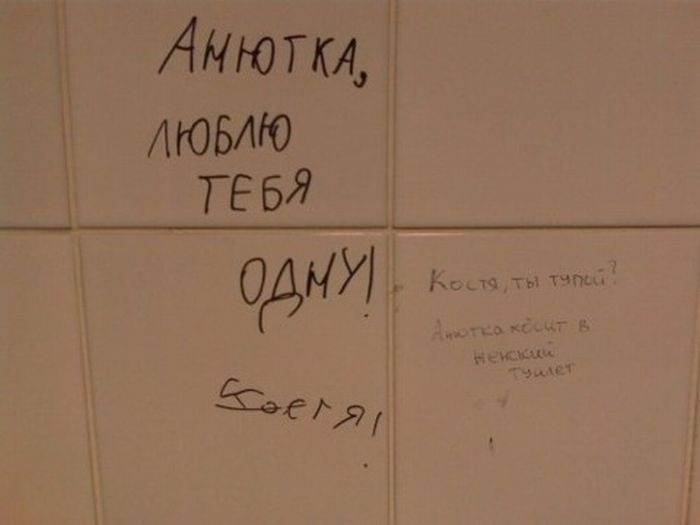 АНЮТКА,
ЛЮБЛЮ
ТЕБЯ
ОДНУ!
Костя!
Костя, ты тупой?
Анютка ходит в
женский
туалет